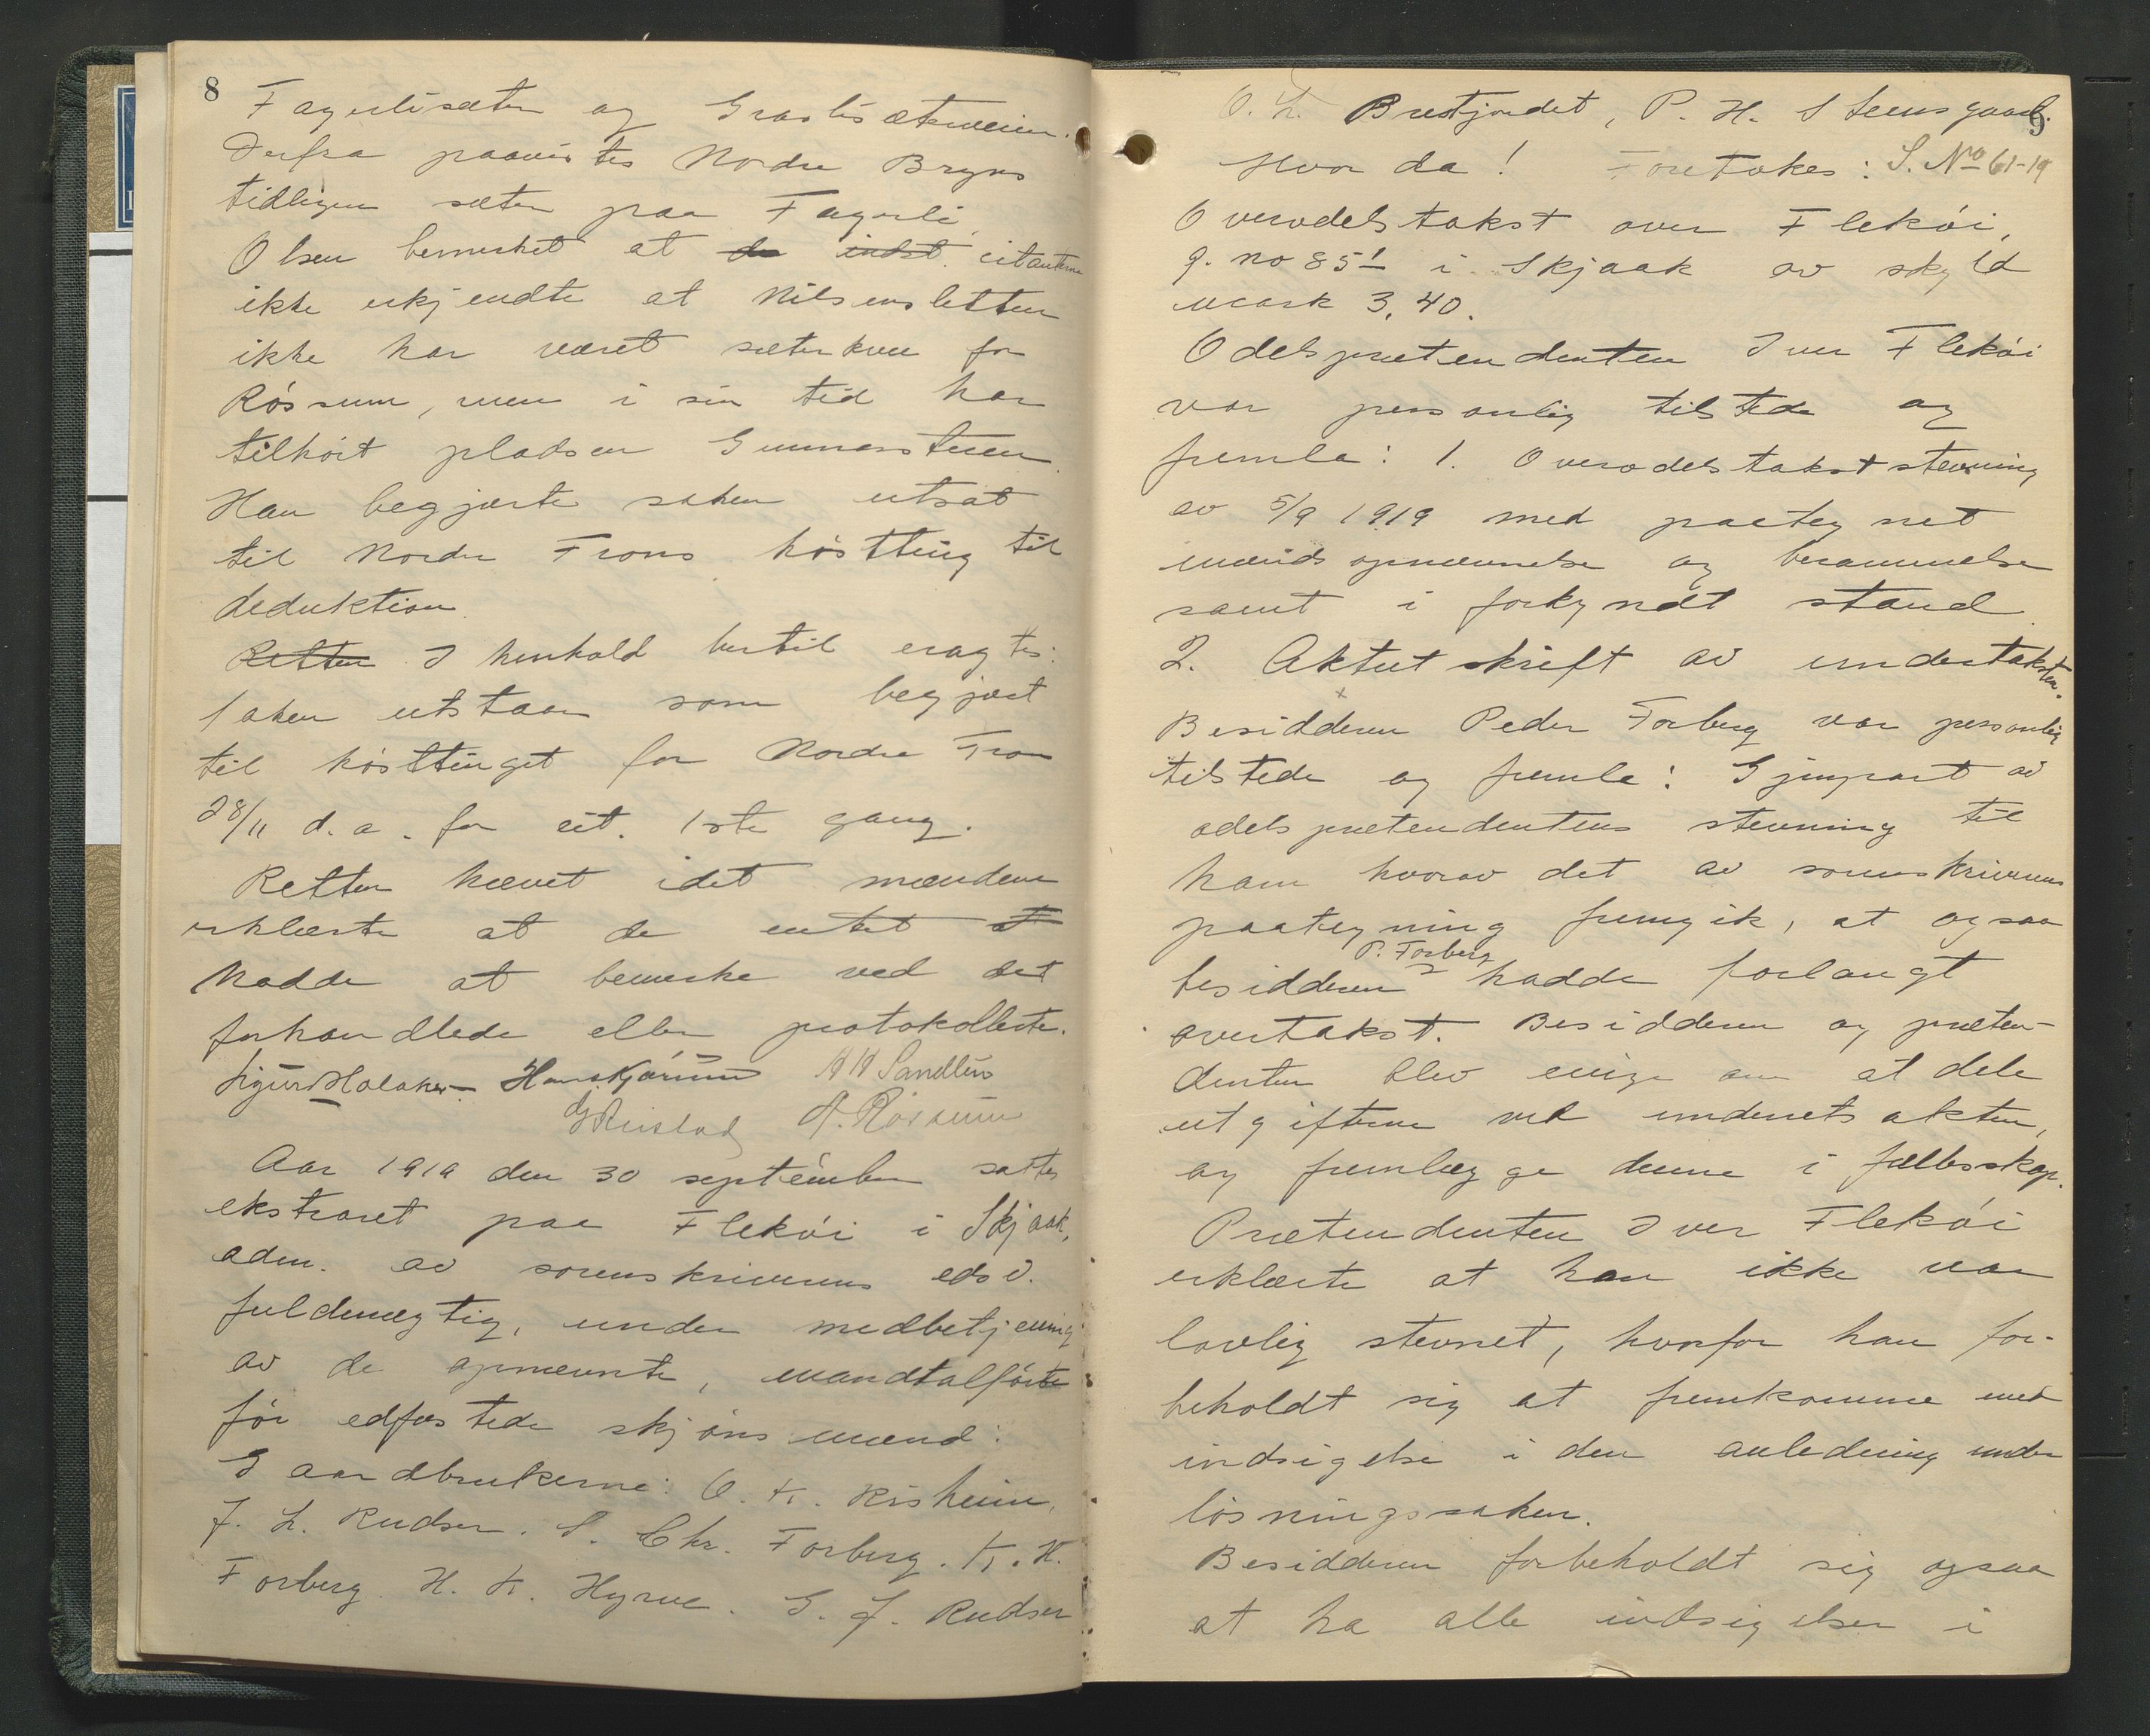 8
Fagerlisæter og Graslisæterveien.
Derfra paavistes Nordre Bryns
tidligere sæter paa Fagerli.
Olsen bemerket at de indst. citanterne
ikke erkjendte at Nilsensletten
ikke har været sæterkve for
Røssum, men i sin tid har
tilhørt pladsen Gunnarstuen.
Han begjærte saken utsat
til Nordre Frons høstting til
deduktion.
Retten I henhold hertil eragtes:
Saken utstaar som begjært
til høsttinget for Nordre Fron
28/11 d.a. for cit. 1ste gang.
Retten hævet idet mændene
erklærte at de intet at
hadde at bemerke ved det
forhandlede eller protokollerte.
Sigurd Holaker Hans Kjorum H H Sandbu
A. Røssum
Aar 1919 den 30 september sattes
ekstraret paa Flekøi i Skjaak,
adm. av sorenskriverens edsv.
fuldmægtig, under medbetjening
av de opnævnte, mandtalførte
før edfæstede skjønsmænd:
Gaardbrukerne: O. K. Risheim,
J. L. Rudsen. S. Chr. Forberg. K. H.
Forberg. H. K. Hyrve. G. J. Rudsen
9
O. L. Brustjordet, P. H. Steensgaard.
Hvor da! Foretokes: S. No 61-19
Overodelstakst over Flekøi,
g. no 85/1 i Skjaak av skyld
mark 3,40.
Odelsprætendenten Iver Flekøi
var personlig tilstede og
fremla: 1. Overodelstakststevning
av 5/9 1919 med paategnet
mændsopnævnelse og berammelse
samt i forkyndt stand.
2. Aktutskrift av undertaksten.
Besidderen Peder Forberg var personlig
tilstede og fremla: Gjenpart av
odelsprætendentens stevning til
ham hvorav det av sorenskriverens
paategning fremgik, at ogsaa
besidderen P. Forberg hadde forlangt
overtakst. Besidderen og præten-
denten blev enige om at dele
utgifterne ved underretsakten,
og fremlægge denne i fællesskap.
Prætendenten Iver Flekøi
erklærte at han ikke var
lovlig stevnet, hvorfor han for-
beholdt sig at fremkomme med
indsigelse i den anledning under
løsningssaken.
Besidderen forbeholdt sig ogsaa
at ha alle indsigelser i